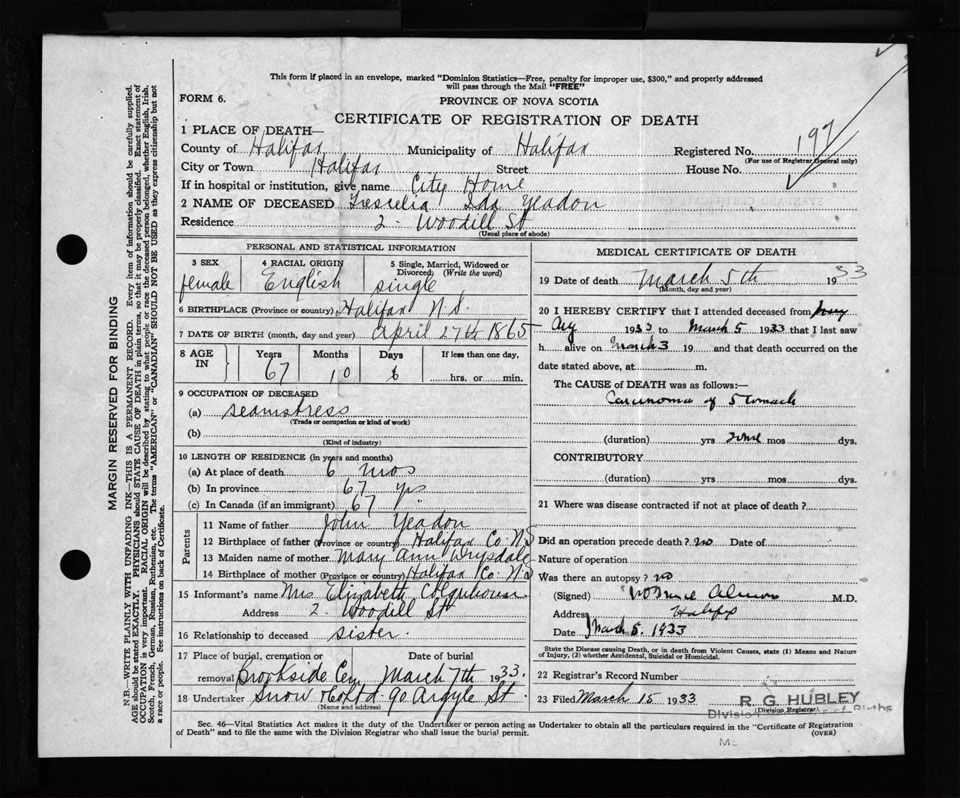 This form if placed in an envelope, marked "Dominion Statistics—Free, penalty for improper use, $300," and properly addressed
will pass through the Mail "FREE"
FORM 6.
PROVINCE OF NOVA SCOTIA
CERTIFICATE OF REGISTRATION OF DEATH
1 PLACE OF DEATH—
County of Halifax Municipality of Halifax Registered No. 197
(For use of Registrar General only)
City or Town Halifax Street House No.
If in hospital or institution, give name City Home
2 NAME OF DECEASED Ida Yeadon
Residence 2 - Woodill St
(Usual place of abode)
PERSONAL AND STATISTICAL INFORMATION
3 SEX female
4 RACIAL ORIGIN English
5 Single, Married, Widowed or Divorced; (Write the word) single
6 BIRTHPLACE (Province or country) Halifax N.S.
7 DATE OF BIRTH (month, day and year) April 27th 1865
8 AGE IN Years Months Days If less than one day,
67 10 6 hrs. or min.
9 OCCUPATION OF DECEASED
(a) seamstress
(Trade or occupation or kind of work)
(b)
(Kind of industry)
10 LENGTH OF RESIDENCE (in years and months)
(a) At place of death 6 mos
(b) In province 67 yrs
(c) In Canada (if an immigrant) 67 "
Parents
11 Name of father John Yeadon
12 Birthplace of father (Province or country) Halifax Co. N.S
13 Maiden name of mother Mary Ann Drysdale
14 Birthplace of mother (Province or country) Halifax Co. N.S
15 Informant's name Mrs Elizabeth
Address 2. Woodill St
16 Relationship to deceased sister.
17 Place of burial, cremation or removal Brookside Cem Date of burial March 7th 1933.
18 Undertaker Snow & Co Ltd 90 Argyle St.
(Name and address)
MEDICAL CERTIFICATE OF DEATH
19 Date of death March 5th 1933
(Month, day and year)
20 I HEREBY CERTIFY that I attended deceased from
1933 to March 5 1933 that I last saw
h alive on March 3 19 and that death occurred on the
date stated above, at m.
The CAUSE of DEATH was as follows:—
Carcinoma of Stomach
(duration) yrs some mos dys.
CONTRIBUTORY
(duration) yrs mos dys.
21 Where was disease contracted if not at place of death?
Did an operation precede death? no Date of
Nature of operation
Was there an autopsy? no
(Signed) Almon M.D.
Address Halifax
Date March 5. 1933
State the Disease Causing Death, or in death from Violent Causes, state (1) Means and Nature
of Injury, (2) whether Accidental, Suicidal or Homicidal.
22 Registrar's Record Number
23 Filed March 15 1933 R. G. HUBLEY
(Division Registrar)
Division of Births
Sec. 46—Vital Statistics Act makes it the duty of the Undertaker or person acting as Undertaker to obtain all the particulars required in the "Certificate of Registration
of Death" and to file the same with the Division Registrar who shall issue the burial permit.
(OVER)
MARGIN RESERVED FOR BINDING
N.B.—WRITE PLAINLY WITH UNFADING INK—THIS IS A PERMANENT RECORD. Every item of information should be carefully supplied.
AGE should be stated EXACTLY. PHYSICIANS should STATE CAUSE OF DEATH in plain terms, so that it may be properly classified. Exact statement of
OCCUPATION is very important. RACIAL ORIGIN will be described by stating to what people or race the deceased person belonged, whether English, Irish,
Scotch, French, German, Russian, Ruthenian, etc. The terms "AMERICAN" or "CANADIAN" SHOULD NOT BE USED as they express citizenship but not
a race or people. See instructions on back of Certificate.